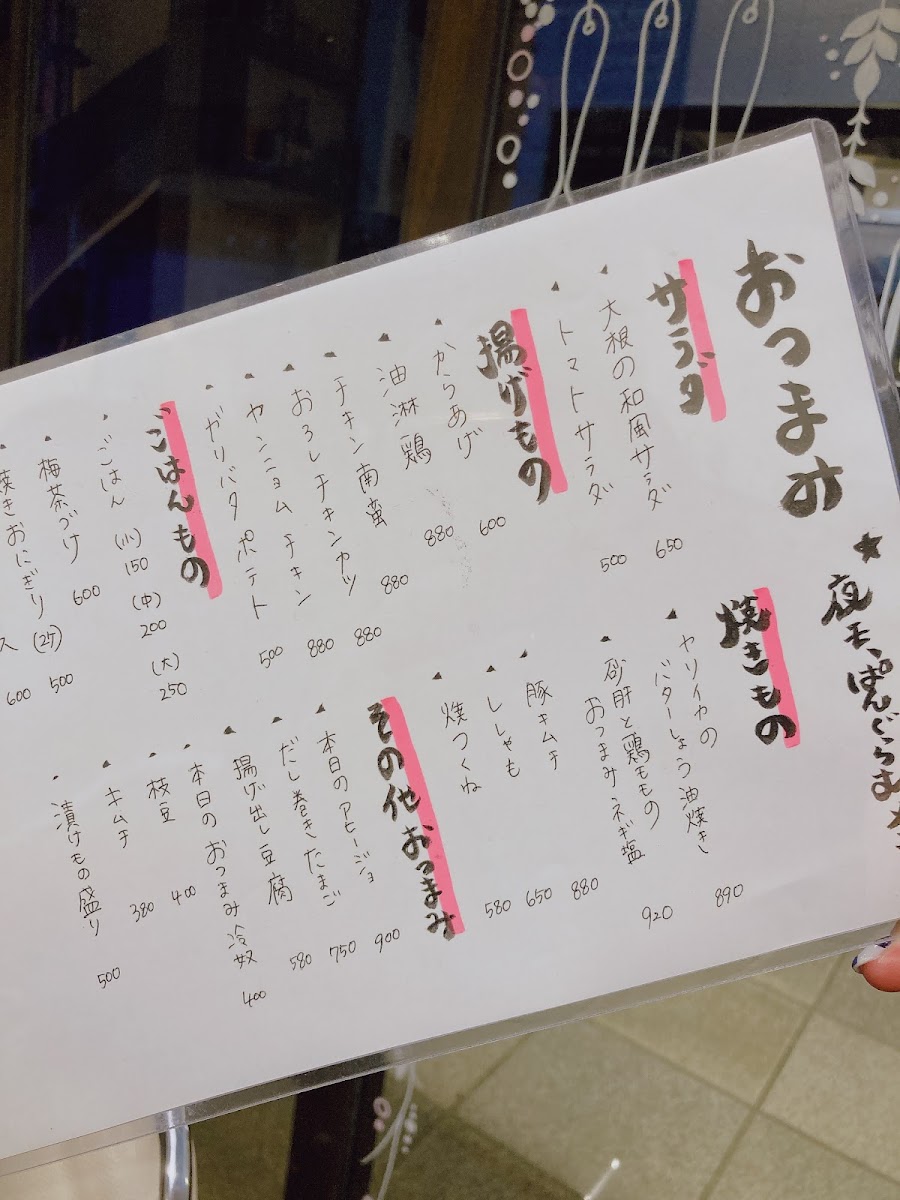 おつまみ
★夜モ、ぱんぐらむ
サラダ
大根の和風サラダ 650
トマトサラダ 500
揚げもの
からあげ 600
油淋鶏 880
チキン南蛮 880
おろしチキンカツ 880
ヤンニョムチキン 880
ガリバタポテト 500
ごはんもの
ごはん (小) 150 (中) 200 (大) 250
梅茶づけ 600
焼きおにぎり (2ケ) 500
ス 600
焼きもの
ヤリイカの
バターしょう油焼き 890
砂肝と鶏ももの
おつまみネギ塩 920
豚キムチ 880
ししゃも 650
焼つくね 580
その他おつまみ
本日のアヒージョ 900
だし巻きたまご 750
揚げ出し豆腐 580
本日のおつまみ冷奴 400
枝豆 400
キムチ 380
漬けもの盛り 500